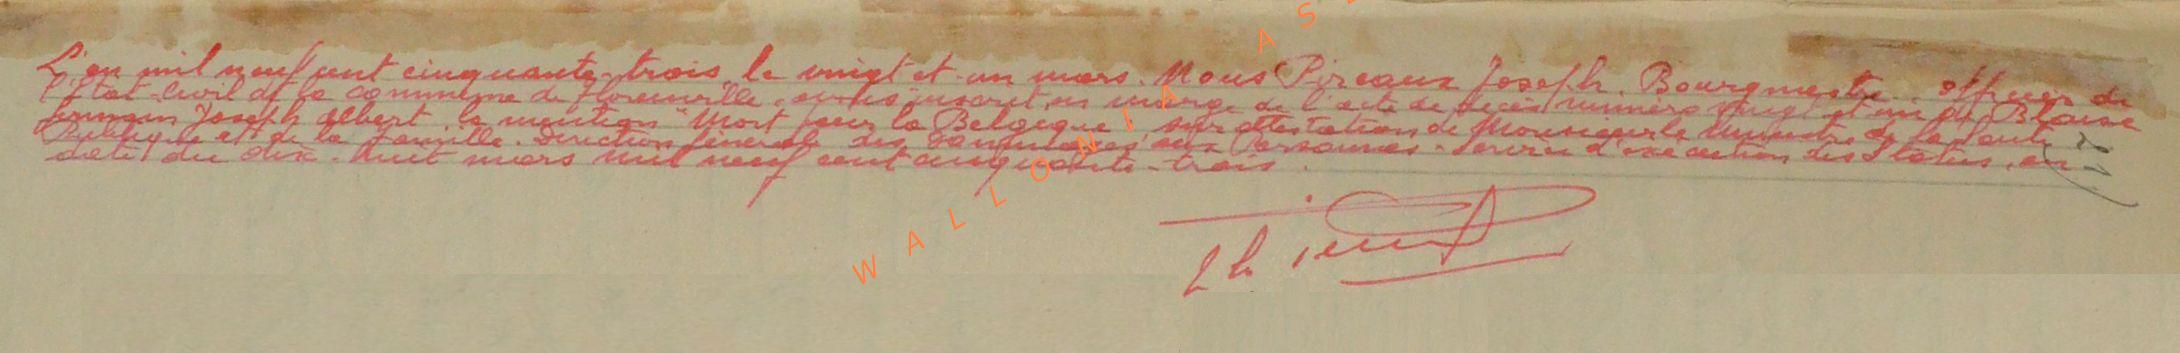 L'an mil neuf cent cinquante-trois le vingt et un mars. Nous Pireaux Joseph. Bourgmestre officier de
l'Etat-Civil de la commune de Florenville, avons inscrit en marge de l'acte de décès numéro vingt et un de Blaise
Germain Joseph Albert, la mention "Mort pour la Belgique" sur attestation de Monsieur le Ministre de la Santé
Publique et de la Famille. Direction Générale des Dommages aux Personnes - Service d'exécution des Statuts, en
date du dix-huit mars mil neuf cent cinquante-trois.
WALLONIA AS